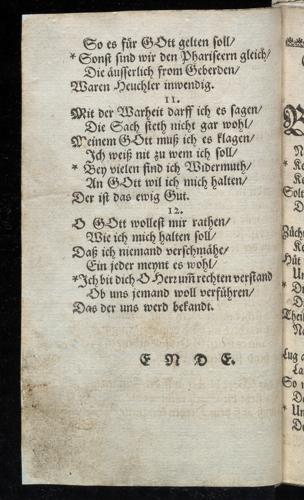 So es für GOtt gelten soll/
* Sonst sind wir den Phariseern gleich/
Die äusserlich from Geberden/
Waren Heuchler inwendig.
11.
Mit der Warheit darff ich es sagen/
Die Sach steth nicht gar wohl/
Meinem GOtt muß ich es klagen/
Ich weiß nit zu wem ich soll/
* Bey vielen find ich Widermuth/
An GOtt wil ich mich halten/
Der ist das ewig Gut.
12.
O GOtt wollest mir rathen/
Wie ich mich halten soll/
Daß ich niemand verschmähe/
Ein jeder meynt es wohl/
* Ich bit dich O Herr um̃ rechten verstand
Ob uns jemand woll verführen/
Das der uns werd bekandt.
E N D E.